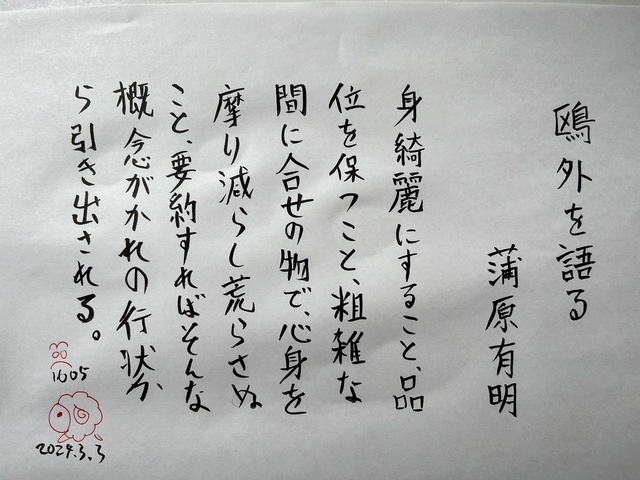 鴎外を語る
蒲原有明
身綺麗にすること、品
位を保つこと、粗雑な
間に合せの物で、心身を
摩り減らし荒らさぬ
こと、要約すればそんな
概念がかれの行状か
ら引き出される。
1605
2024.3.3